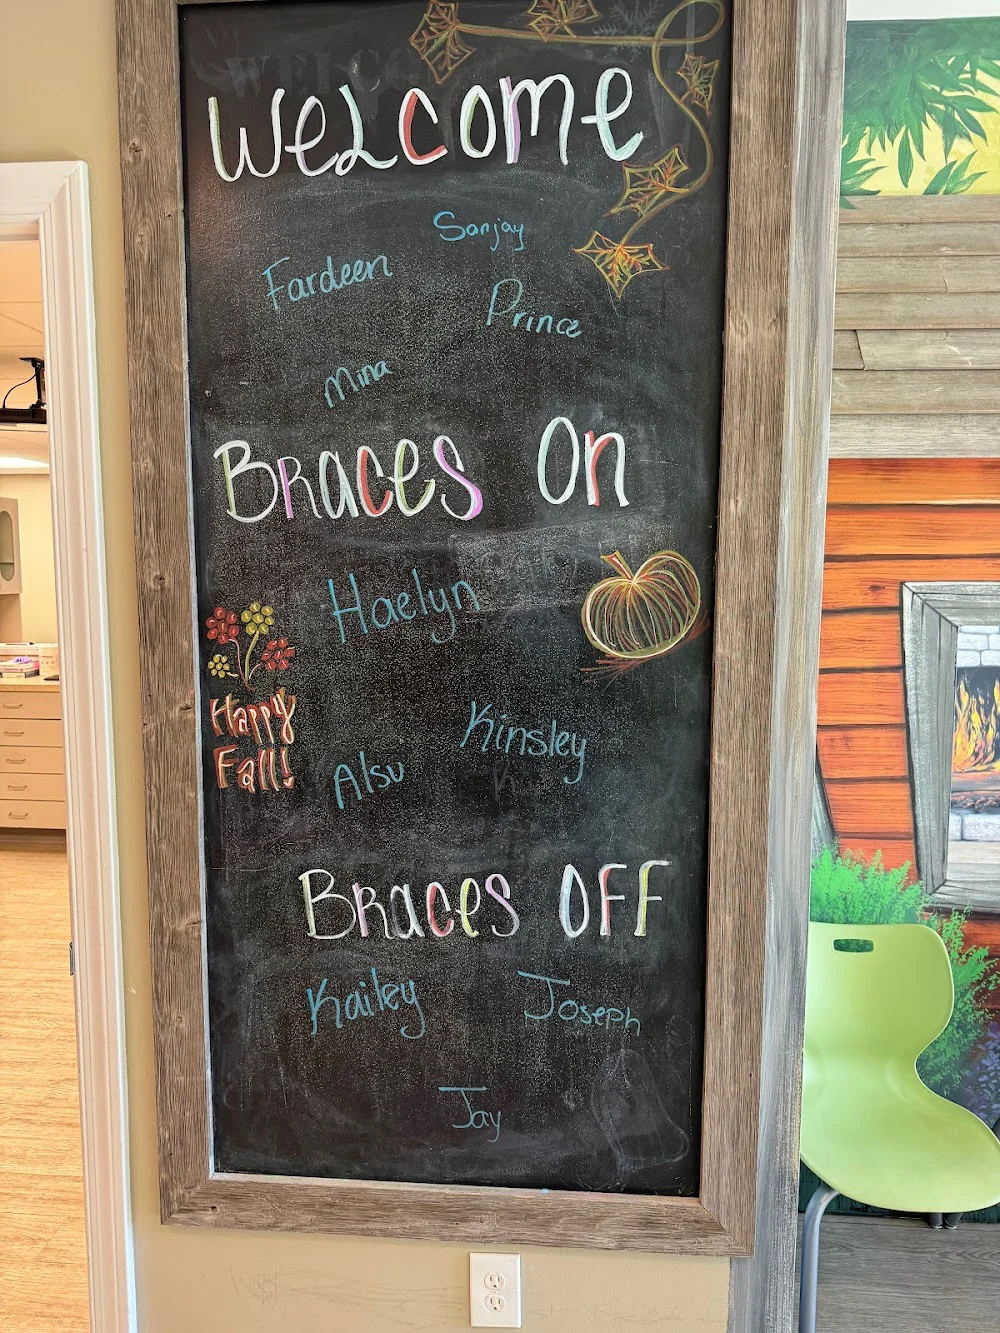 WELCOME
WELCOME
Sanjay
Fardeen
Prince
Mina
Braces On
Haelyn
Happy
Fall!
Kinsley
Alsu
Braces OFF
Kailey
Joseph
Jay